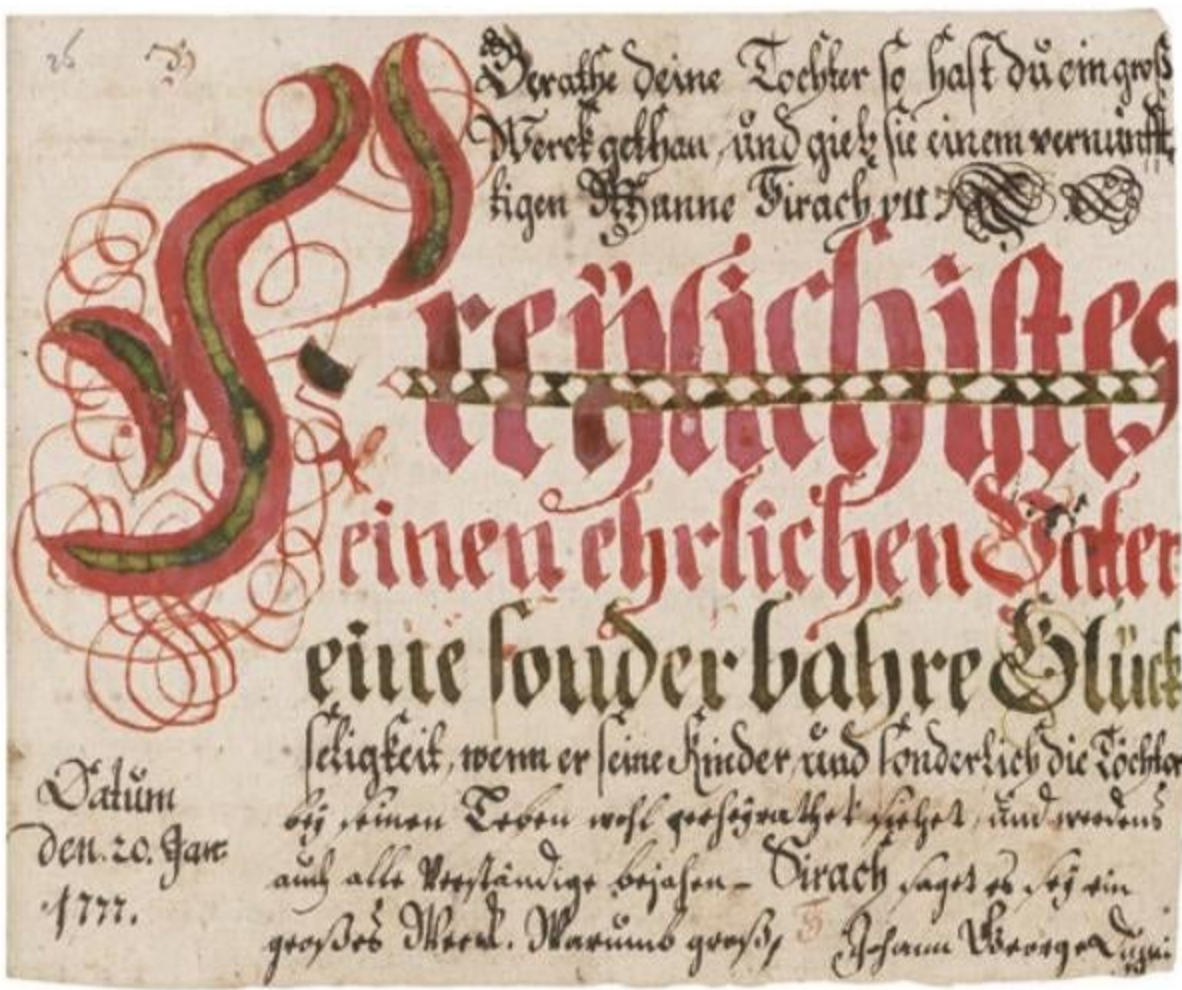 26
Berathe deine Tochter so hast du ein groß
Werck gethan, und gieb sie einem vernünfft,
tigen Manne Sirach VII:
Freÿlich istes
einen ehrlichen Vater
eine sonderbahre Glück
seligkeit, wenn er seine Kinder, und sonderlich die Töchter
beÿ seinen Leben wohl verheÿrathet siehet, und werdens
auch alle Verständige bejahen – Sirach saget es seÿ ein
großes Werck. Warums groß,
Johann George
Datum
den. 20. Jan:
1777.